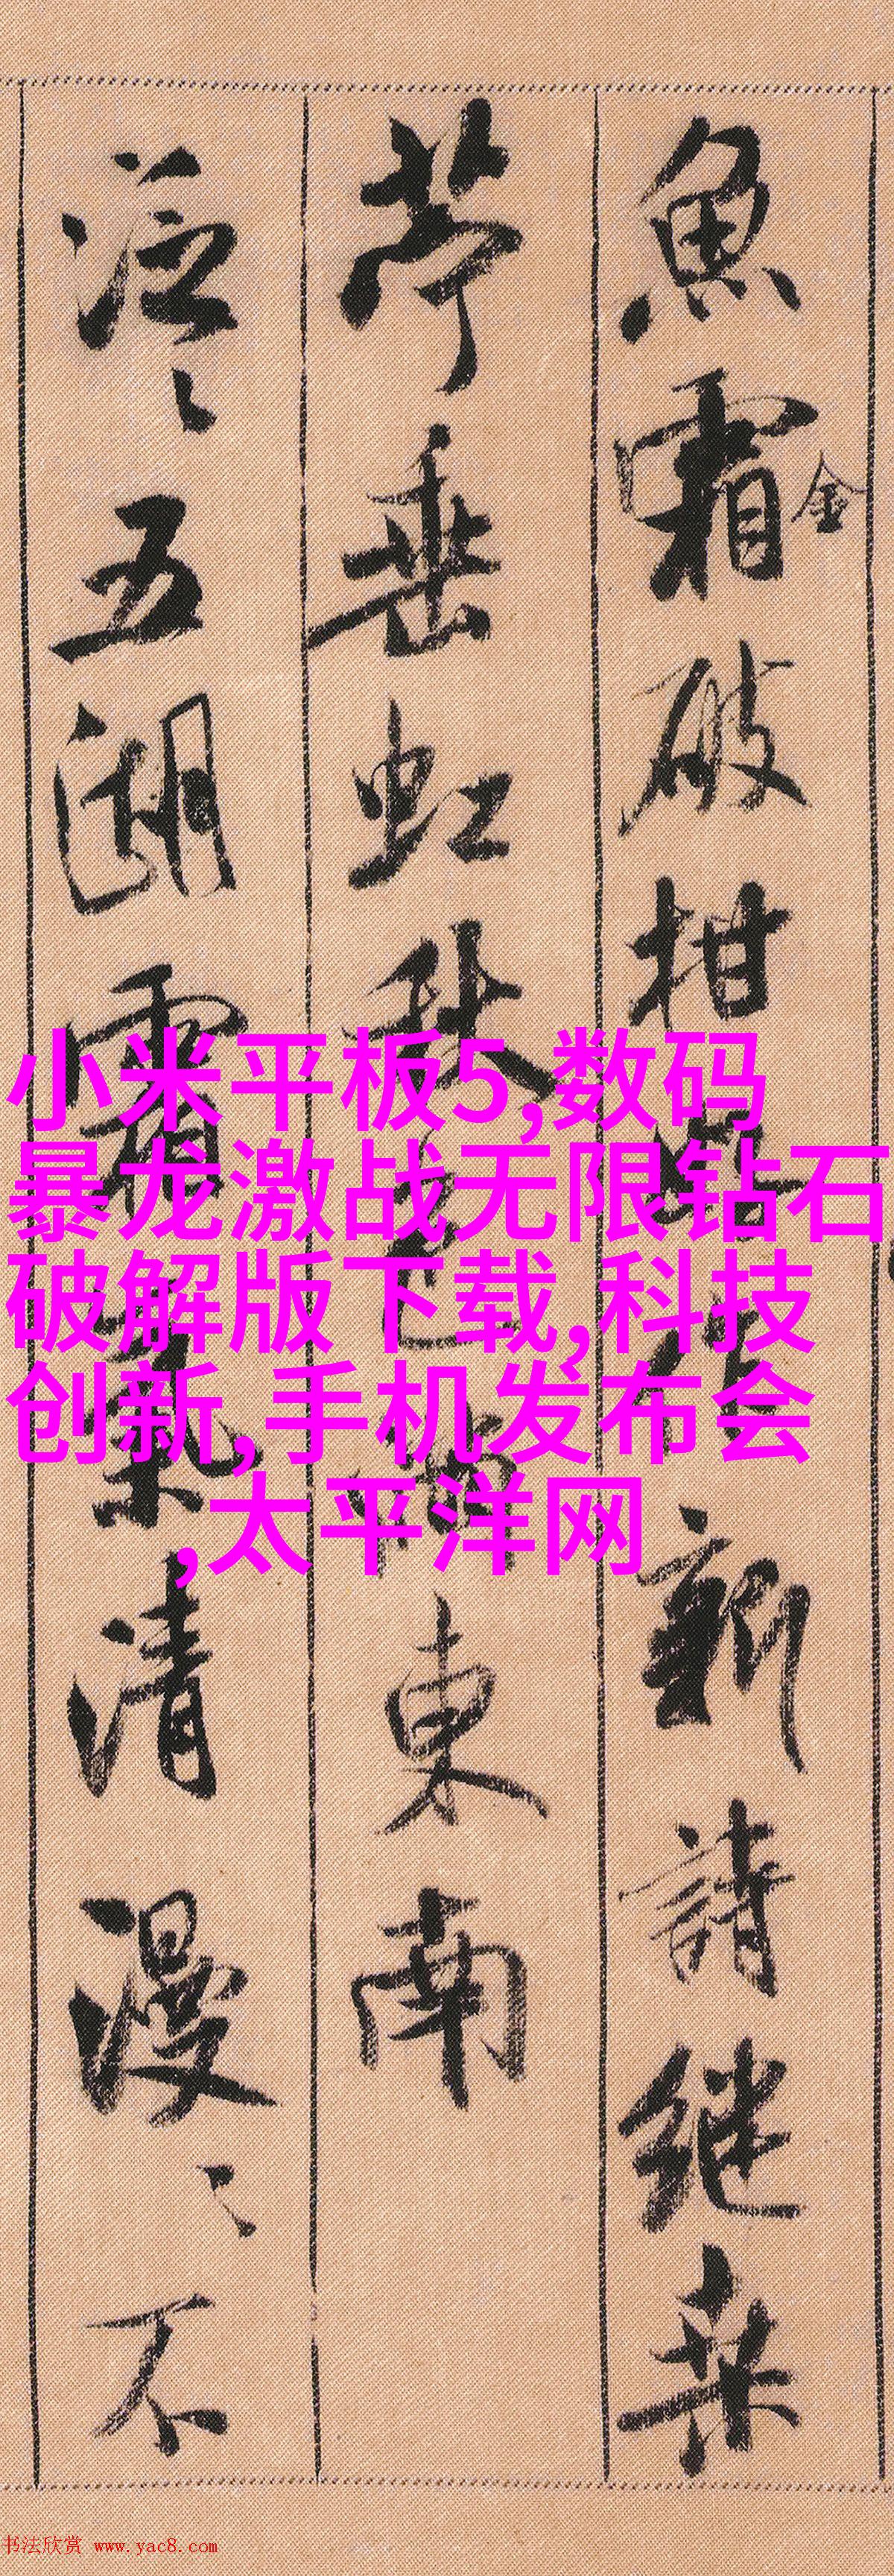 魚霜破柑好作新詩継桑
金
苧垂虹秋色滿東南
泛〻五湖霜氣清漫〻不
小米平板5,数码
暴龙激战无限钻石
破解版下载,科技
创新,手机发布会
,太平洋网
书法欣赏 www.yac8.com